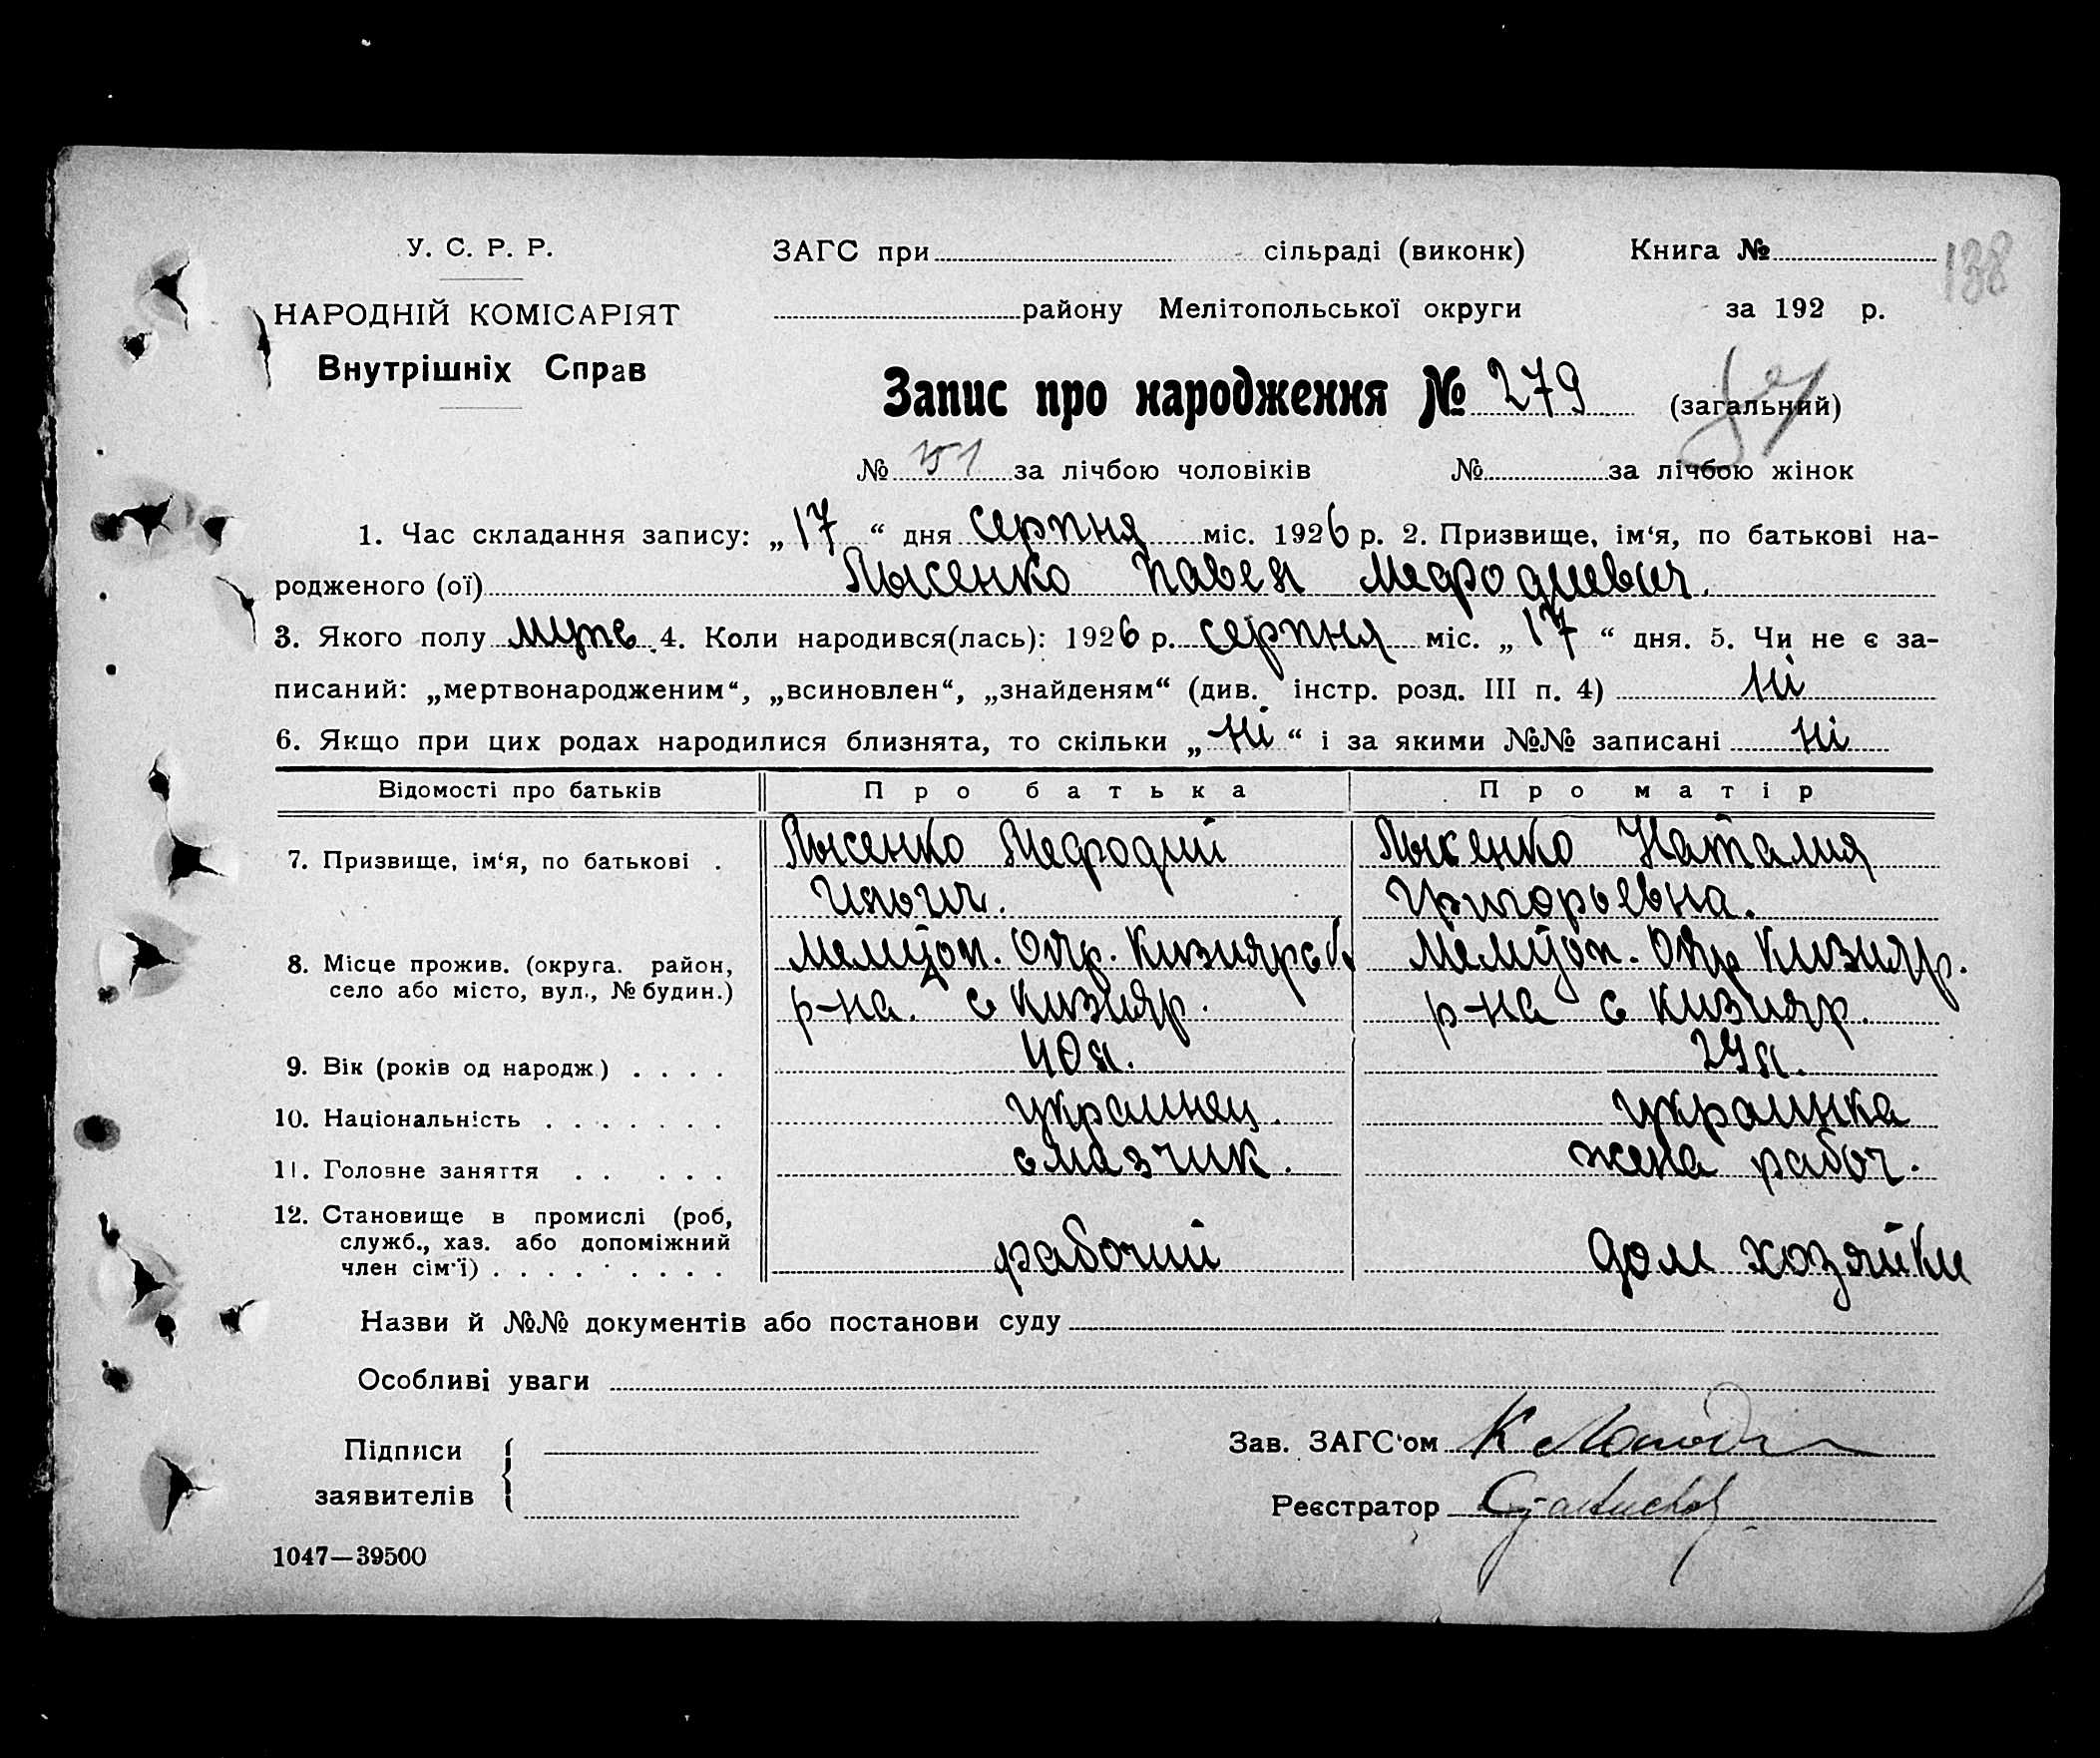 У. С. Р. Р.
НАРОДНІЙ КОМІСАРІЯТ
Внутрішніх Справ
ЗАГС при сільраді (виконк) Книга №
138
району Мелітопольської округи за 192 р.
Запис про народження № 279 (загальний)
№ 151 за лічбою чоловіків № за лічбою жінок
1. Час складання запису: „17“ дня серпня міс. 1926 р. 2. Призвище, ім‘я, по батькові на-
родженого (ої) Лысенко Павел Мефодиевич.
3. Якого полу муже 4. Коли народився(лась): 1926 р. серпня міс. „17“ дня. 5. Чи не є за-
писаний: „мертвонародженим“, „всиновлен“, „знайденям“ (див. інстр. розд. III п. 4) ні
6. Якщо при цих родах народилися близнята, то скільки „ні“ і за якими №№ записані ні
Відомості про батьків Про батька Про матір
7. Призвище, ім‘я, по батькові . Лысенко Мефродий Лысенко Наталия
Ильич. Григорьевна.
8. Місце прожив. (округа. район,
село або місто, вул., № будин.)
Мелитоп. Окр. Кизиярск. Мелитоп. Окр Кизияр.
р-на. с Кизияр. р-на с Кизияр.
9. Вік (років од народж.) . . . . 40л. 29л.
10. Національність . . . . . . . украинец. украинка
11. Головне заняття . . . . . смазчик. жена рабоч.
12. Становище в промислі (роб,
служб., хаз. або допоміжний
член сім‘ї) . . . . . . . . . рабочий дом хозяйки
Назви й №№ документів або постанови суду
Особливі уваги
Підписи
заявителів
Зав. ЗАГС‘ом
Реєстратор
1047—39500